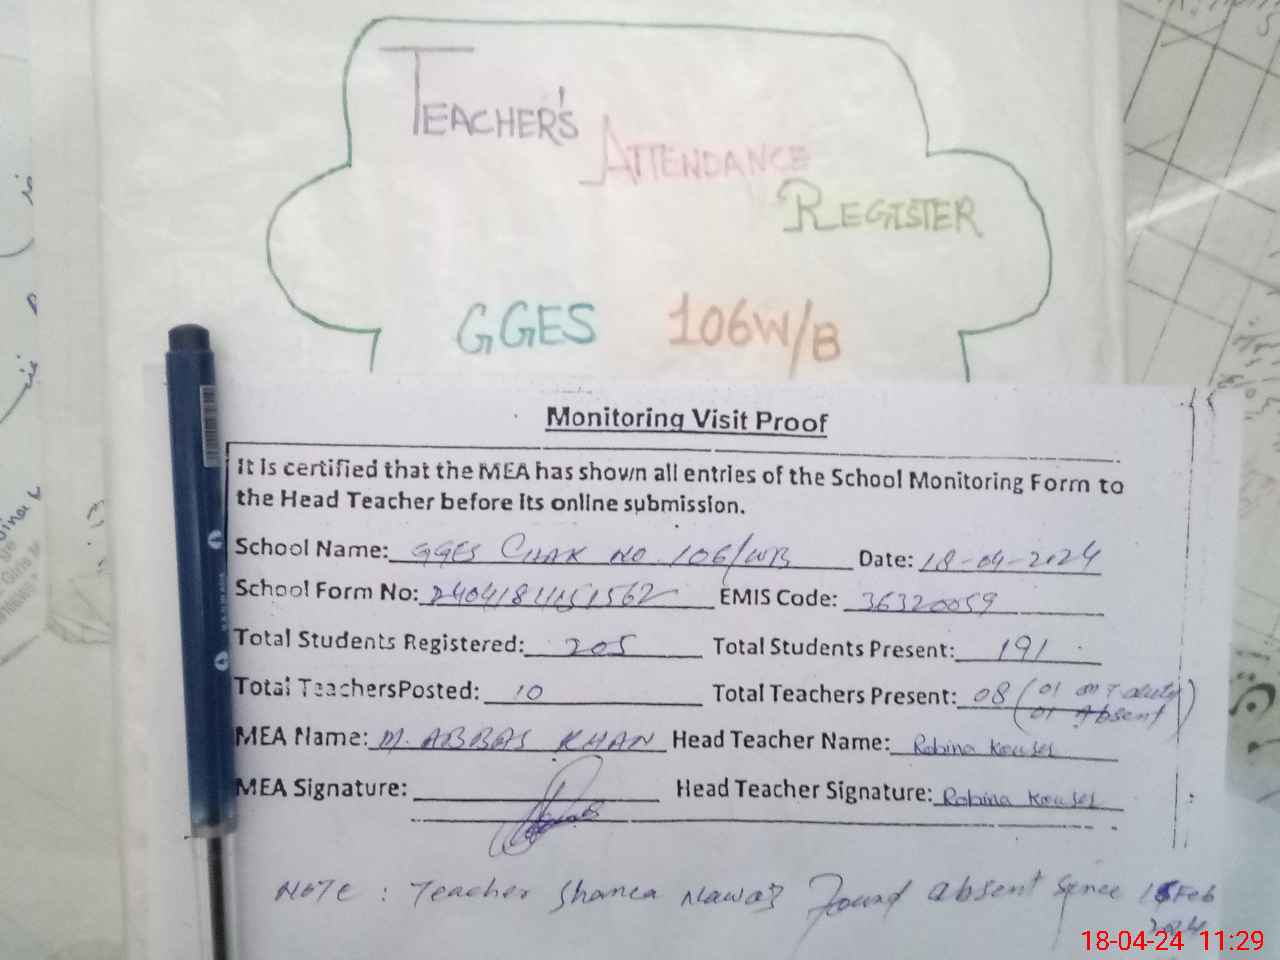 TEACHER'S
ATTENDANCE
REGISTER
GGES 106W/B
Monitoring Visit Proof
It is certified that the MEA has shown all entries of the School Monitoring Form to
the Head Teacher before its online submission.
School Name: GGES CHAK NO. 106/WB Date: 18-04-2024
School Form No: EMIS Code: 36320059
Total Students Registered: 205 Total Students Present: 191
Total TeachersPosted: 10 Total Teachers Present: 08 (01 on T-duty
01 Absent)
MEA Name: M. ABBAS KHAN Head Teacher Name: Robina Kouser
MEA Signature: Head Teacher Signature: Robina Kouser
NOTE : Teacher Nawaz Found absent Since 15 Feb
2024
18-04-24 11:29